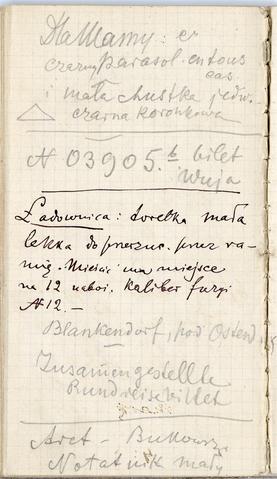 Dla Mamy: 
czarny parasol entous
cas
i mała chustka jedw.
czarna koronkowa
N 03905. b bilet
wuja
Ładownica: torebka mała
lekka do przerzuc. przez ra-
mię. Mieścić ma miejsce
na 12 naboi. kaliber fuzyi
N 12. —
Blankendorf, pod Ostend
Zusamengestellte
Rundreisebillet
Arct –
Notatnik mały